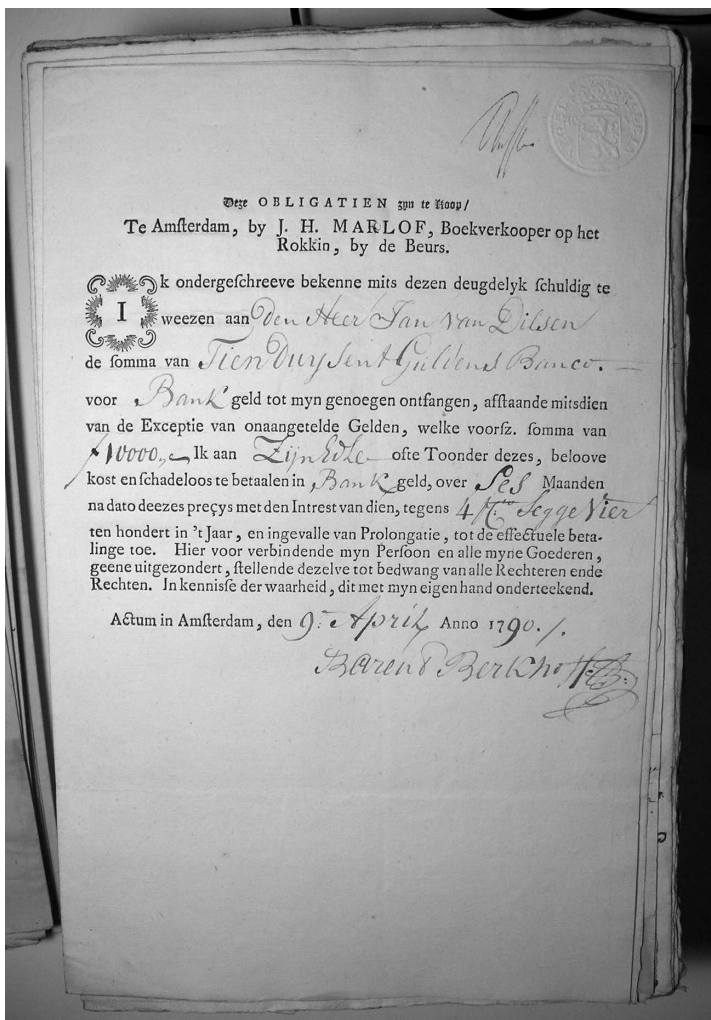 Deze OBLIGATIEN zyn te Koop/
Te Amſterdam, by J. H. MARLOF, Boekverkooper op het
Rokkin, by de Beurs.
Ik ondergeſchreeve bekenne mits dezen deugdelyk ſchuldig te
weezen aan den Heer Jan van Dilsen
de ſomma van Tien Duysent Guldens Banco.
voor Bank geld tot myn genoegen ontfangen, afſtaande mitsdien
van de Exceptie van onaangetelde Gelden, welke voorſz. ſomma van
ƒ10000,, Ik aan Zijn Edle ofte Toonder dezes, beloove
koſt en ſchadeloos te betaalen in Bank geld, over Ses Maanden
na dato deezes preçys met den Intrest van dien, tegens 4 Segge Vier
ten hondert in 't Jaar, en ingevalle van Prolongatie, tot de effectuele beta-
linge toe. Hier voor verbindende myn Perſoon en alle myne Goederen,
geene uitgezondert, ſtellende dezelve tot bedwang van alle Rechteren ende
Rechten. In kenniſſe der waarheid, dit met myn eigen hand onderteekend.
Actum in Amſterdam, den 9 April Anno 1790./.
Barend Berkhoff